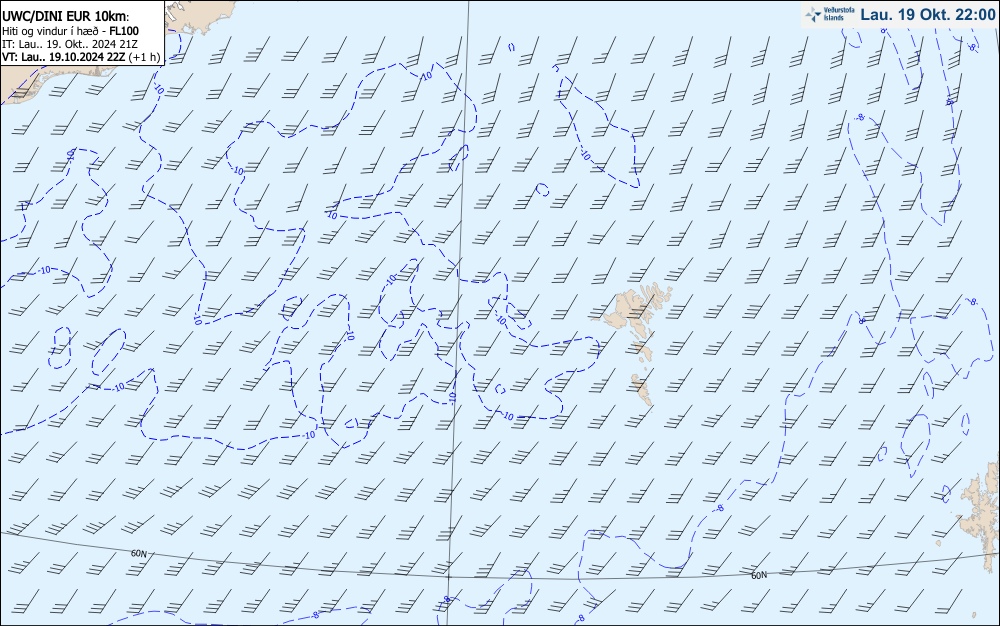 UWC/DINI EUR 10km:
Hiti og vindur í hæð - FL100
IT: Lau.. 19. Okt.. 2024 21Z
VT: Lau.. 19.10.2024 22Z (+1 h)
Veðurstofa
Íslands
Lau. 19 Okt. 22:00
-10
-10
-8
-8
-10
-10
-10
-10
-10
-10
-8
-10
-10
-8
-10
-10
-10
-10
-10
-8
60N
60N
-8
-8
-8